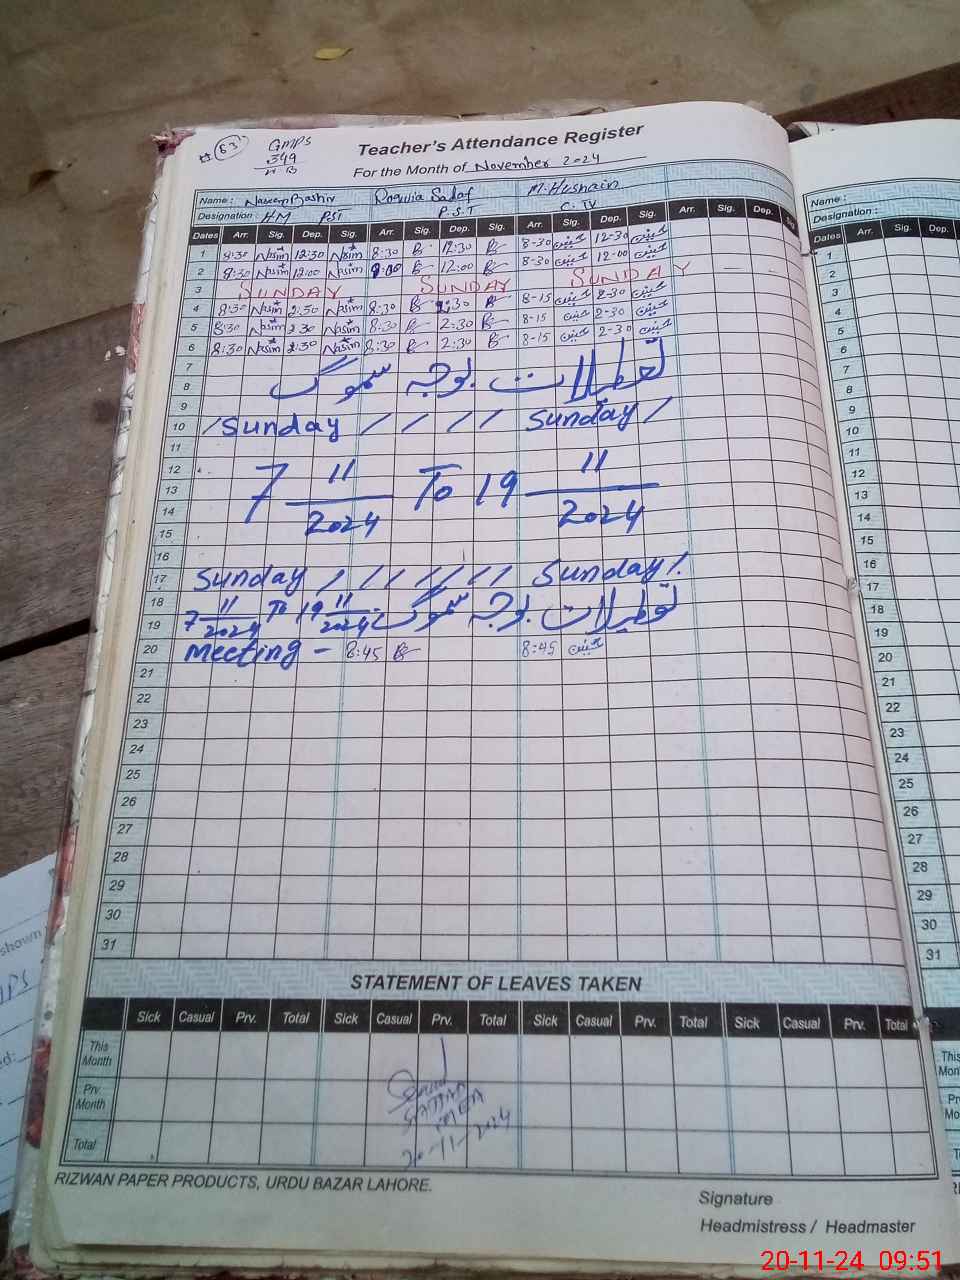 63
GMPS
349
Teacher's Attendance Register
For the Month of November 2024
Name : Naseem Bashir Sadaf M. Husnain
Designation : H.M PST P.S.T C. IV
Dates Arr. Sig. Dep. Sig. Arr. Sig. Dep. Sig. Arr. Sig. Dep. Sig. Arr. Sig. Dep. Sig.
1 8:30 Nasim 12:30 Nasim 8:30 12:30 8-30 حسنین 12-30 حسنین
2 8:30 Nasim 12:00 Nasim 8:30 12:00 8-30 حسنین 12-00 حسنین
3 SUNDAY SUNDAY SUNDAY
4 8:30 Nasim 2:30 Nasim 8:30 2:30 8-15 حسنین 2-30 حسنین
5 8:30 Nasim 2:30 Nasim 8:30 2:30 8-15 حسنین 2-30 حسنین
6 8:30 Nasim 2:30 Nasim 8:30 2:30 8-15 حسنین 2-30 حسنین
7
8 تعطیلات بوجہ سموگ
9
10 / Sunday / / / / Sunday /
11
12
13 7 11/2024 To 19 11/2024
14
15
16
17 Sunday / / / / / / Sunday /.
18
19 7 11/2024 To 19 11/2024 تعطیلات بوجہ سموگ
20 Meeting - 8:45 8:45 حسنین
21
22
23
24
25
26
27
28
29
30
31
STATEMENT OF LEAVES TAKEN
Sick Casual Prv. Total Sick Casual Prv. Total Sick Casual Prv. Total Sick Casual Prv. Total
This Month
Prv. Month
Total
MEA
20-11-2024
RIZWAN PAPER PRODUCTS, URDU BAZAR LAHORE.
Signature
Headmistress / Headmaster
Name :
Designation :
Dates Arr.
1
2
3
4
5
6
7
8
9
10
11
12
13
14
15
16
17
18
19
20
21
22
23
24
25
26
27
28
29
30
31
shown
20-11-24 09:51